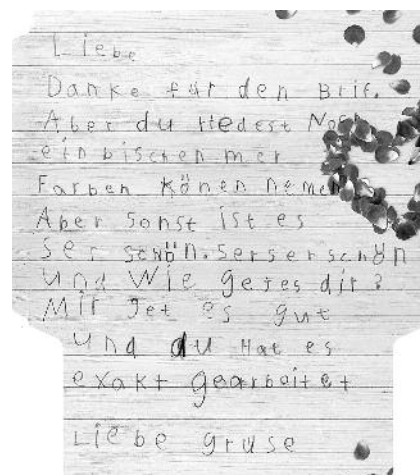 Liebe
Danke für den Brif.
Aber du Hedest Noch
ein bischen mer
Farben könen nemen
Aber sonst ist es
ser schön. ser ser schön
und wie getes dir?
Mir get es gut
und du Hat es
exakt gearbeitet
Liebe grüse